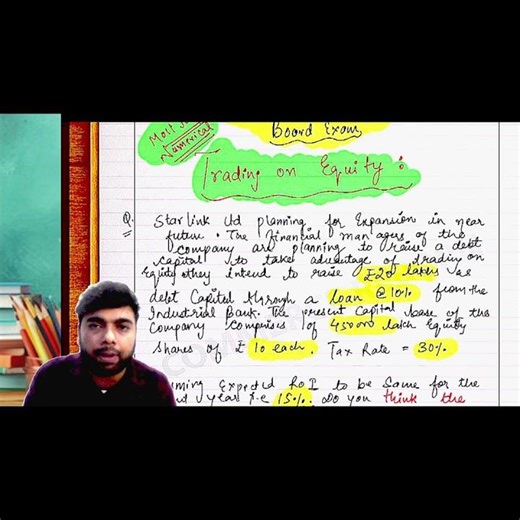 Most
Numerical
Board Exam
Trading on Equity :
Q. Starlink Ltd planning for Expansion in near
future. The financial managers of the
company are planning to raise a debt
capital to take advantage of trading on
Equity they intend to raise ₤20 lakhs as
debt Capital through a loan @10% from the
Industrial Bank. The present Capital base of the
Company Comprises of 450000 lakh Equity
Shares of ₤ 10 each. Tax Rate = 30%.
uming Expected RoI to be Same for the
year i.e 15%. Do you think the